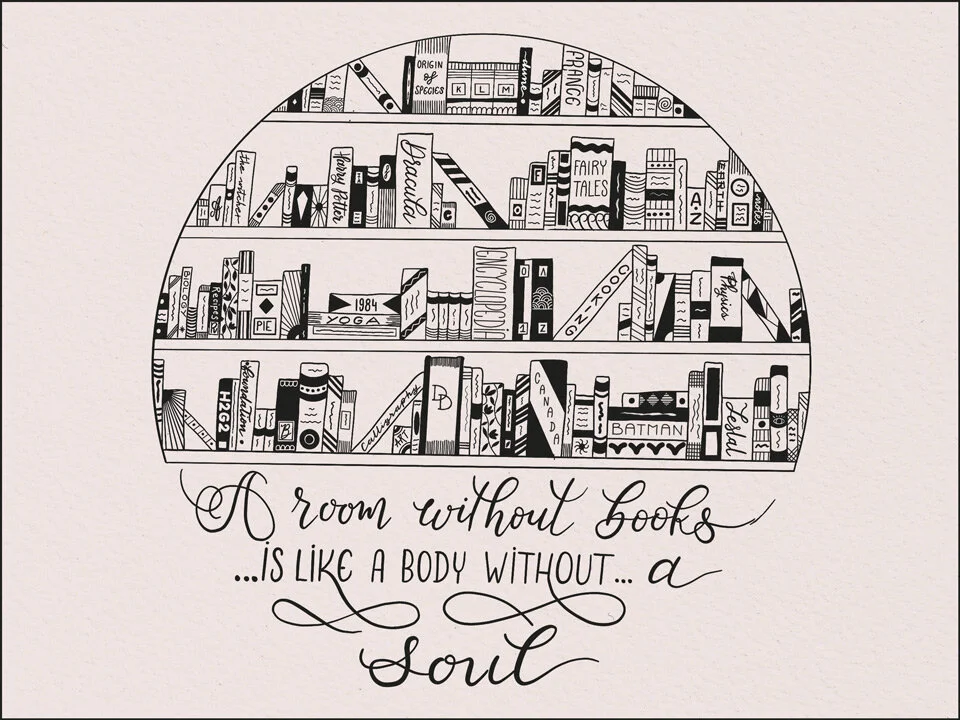 ORIGIN
of
SPECIES
K L M
dune.
PRANCE
the witcher
Harry Potter
Dracula
C
F
O
FAIRY
TALES
A-Z
EARTH
notes
BIOLOGY
Recipes
PIE
1984
YOGA
ENCYCLOPEDIA
0 A
1 Z
COOKING
Physics
H2G2
foundation.
B
Calligraphy
ART
DD
CANADA
BATMAN
Leslal
A room without books
...is LiKE A BODY WiTHOUT... a
soul